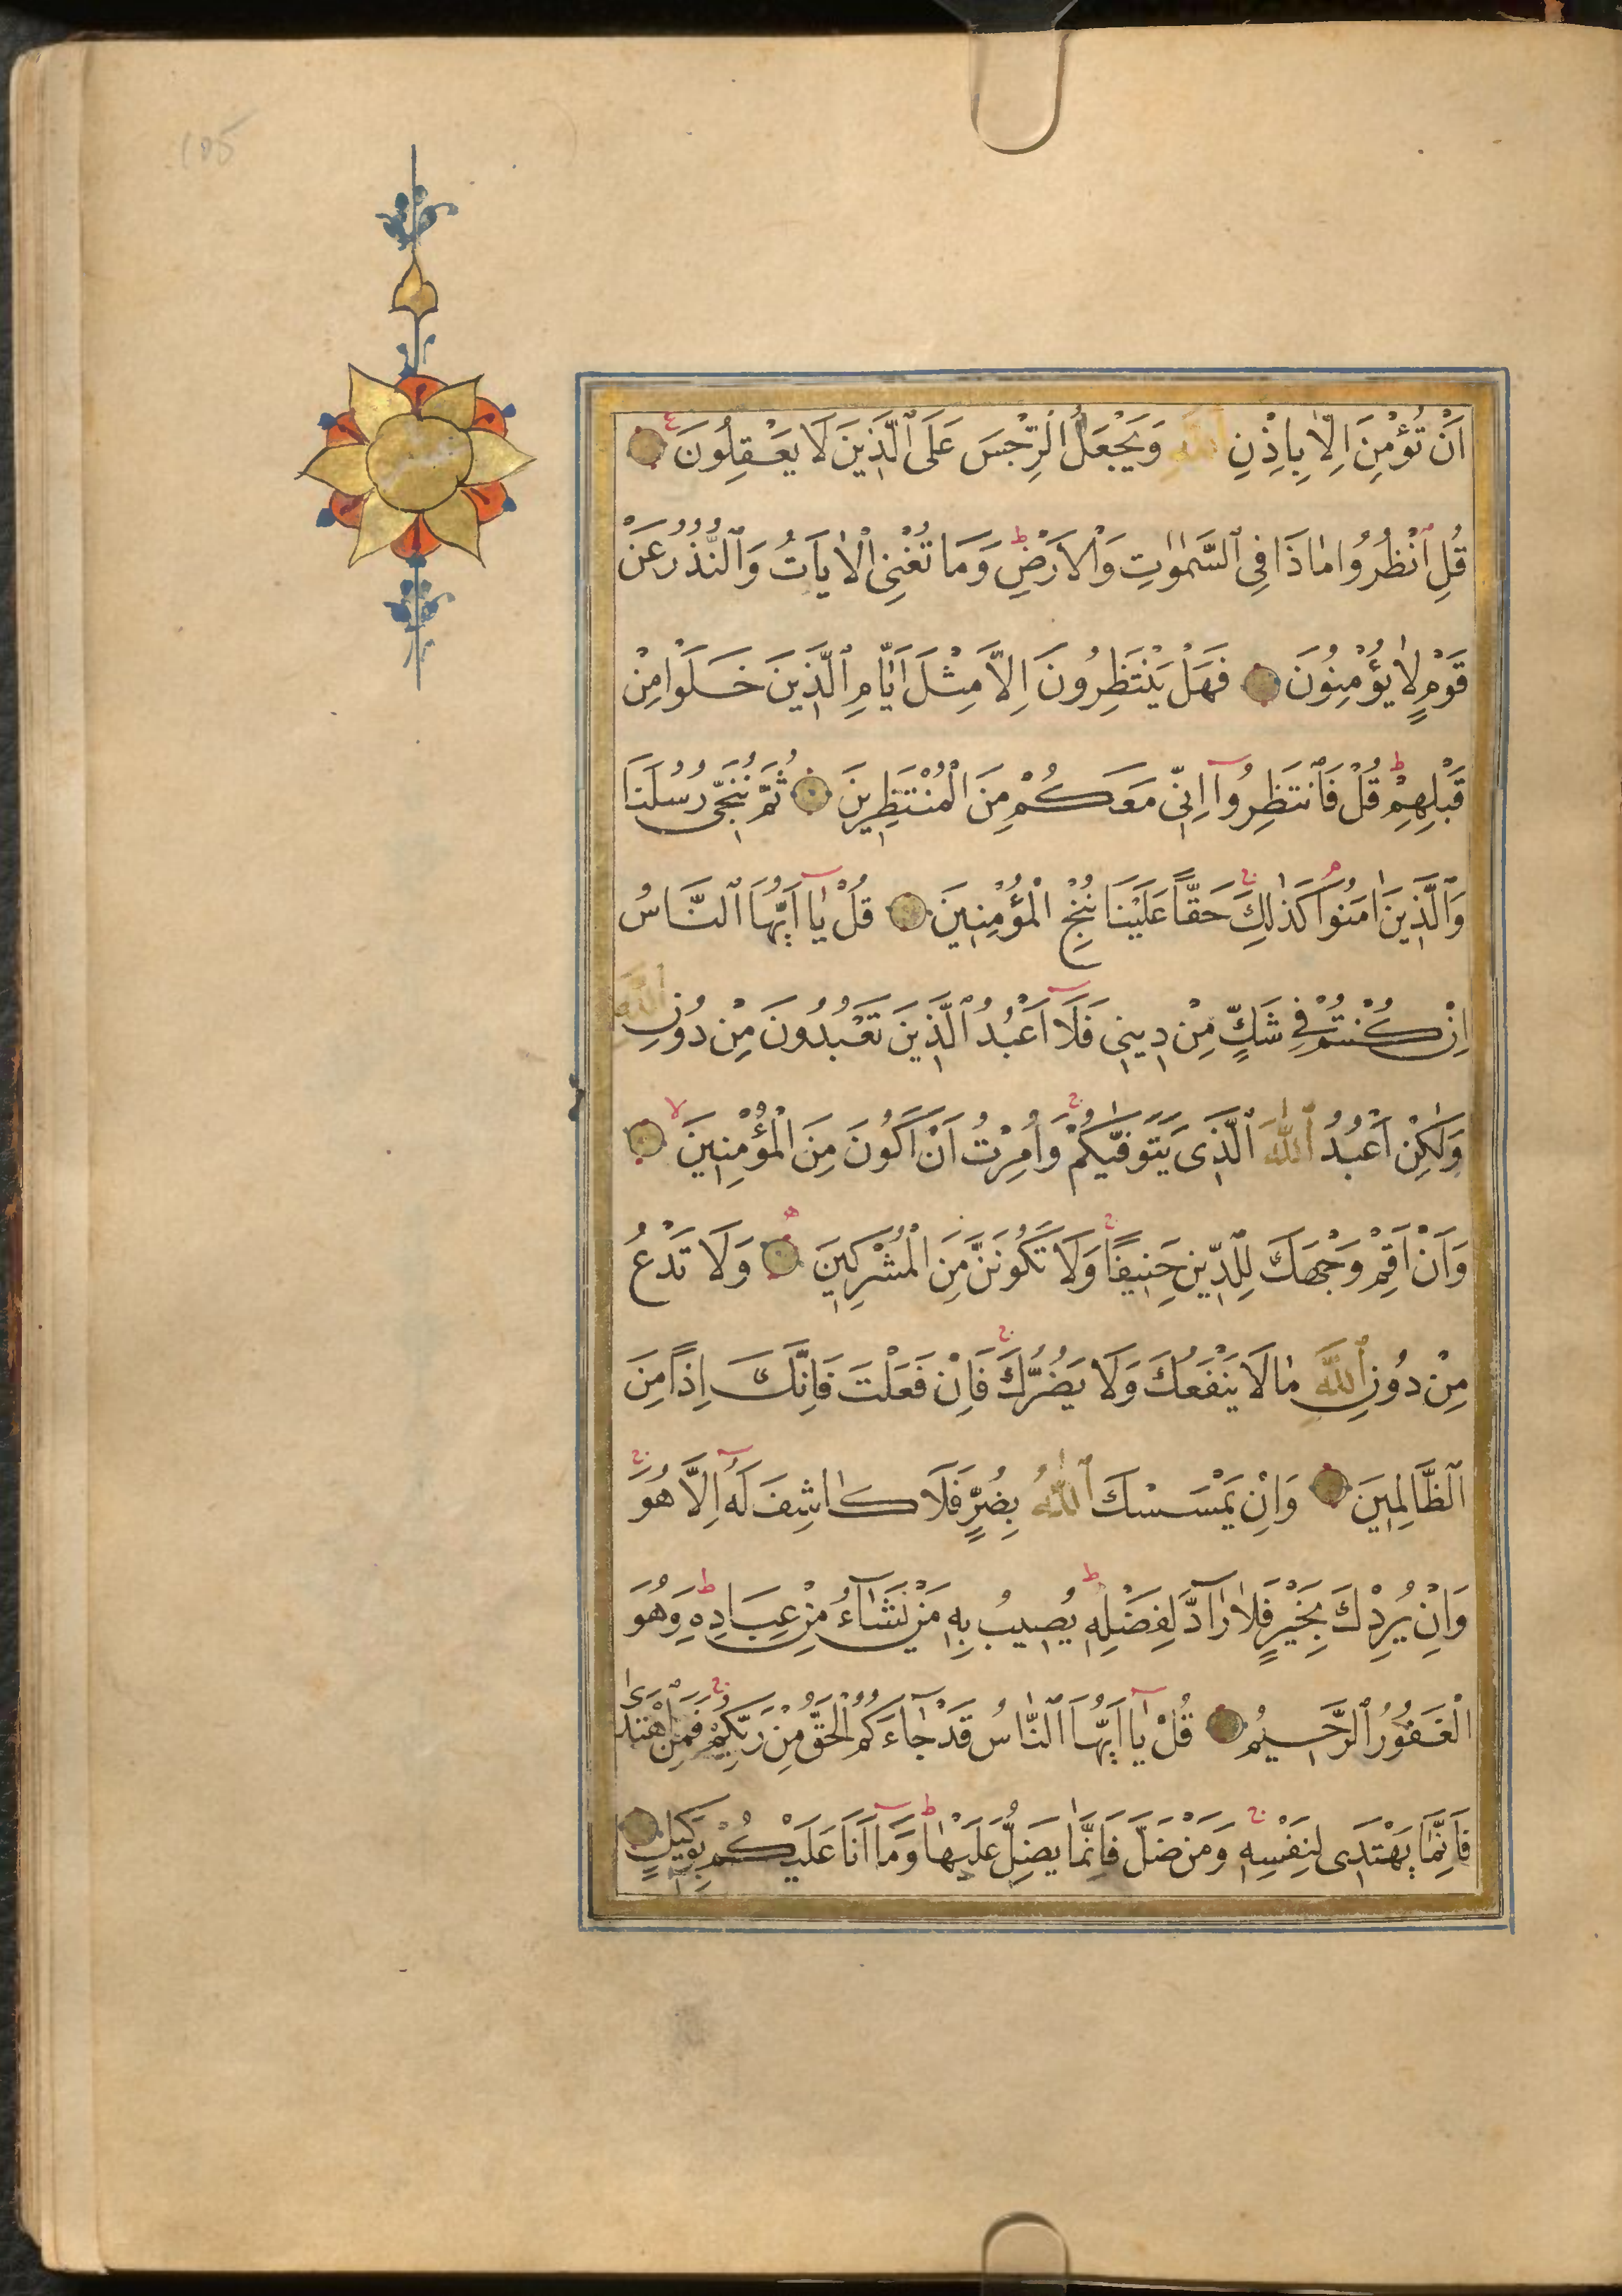 105
اَنْ تُؤْمِنَ اِلَّا بِاِذْنِ اللّٰهِ وَيَجْعَلُ الرِّجْسَ عَلَى الَّذِينَ لَا يَعْقِلُونَ ع
قُلِ انْظُرُوا مَاذَا فِي السَّمٰوَاتِ وَالْاَرْضِ ط وَمَا تُغْنِي الْاٰيَاتُ وَالنُّذُرُ عَنْ
قَوْمٍ لَا يُؤْمِنُونَ فَهَلْ يَنْتَظِرُونَ اِلَّا مِثْلَ اَيَّامِ الَّذِينَ خَلَوْا مِنْ
قَبْلِهِمْ ط قُلْ فَانْتَظِرُوا اِنِّي مَعَكُمْ مِنَ الْمُنْتَظِرِينَ ثُمَّ نُنَجِّى رُسُلَنَا
وَالَّذِينَ اٰمَنُوا كَذٰلِكَ ج حَقًّا عَلَيْنَا نُنْجِ الْمُؤْمِنِينَ قُلْ يَا اَيُّهَا النَّاسُ
اِنْ كُنْتُمْ فِي شَكٍّ مِنْ دِينِي فَلَا اَعْبُدُ الَّذِينَ تَعْبُدُونَ مِنْ دُونِ اللّٰهِ
وَلٰكِنْ اَعْبُدُ اللّٰهَ الَّذِى يَتَوَفّٰيكُمْ ج وَاُمِرْتُ اَنْ اَكُونَ مِنَ الْمُؤْمِنِينَ لا
وَاَنْ اَقِمْ وَجْهَكَ لِلدِّينِ حَنِيفًا ج وَلَا تَكُونَنَّ مِنَ الْمُشْرِكِينَ وَلَا تَدْعُ
مِنْ دُونِ اللّٰهِ مَا لَا يَنْفَعُكَ وَلَا يَضُرُّكَ ج فَاِنْ فَعَلْتَ فَاِنَّكَ اِذًا مِنَ
الظَّالِمِينَ وَاِنْ يَمْسَسْكَ اللّٰهُ بِضُرٍّ فَلَا كَاشِفَ لَهُ اِلَّا هُوَ ج
وَاِنْ يُرِدْكَ بِخَيْرٍ فَلَا رَآدَّ لِفَضْلِهِ ط يُصِيبُ بِهِ مَنْ يَشَآءُ مِنْ عِبَادِهِ ط وَهُوَ
الْغَفُورُ الرَّحِيمُ قُلْ يَا اَيُّهَا النَّاسُ قَدْ جَآءَكُمُ الْحَقُّ مِنْ رَبِّكُمْ ج فَمَنِ اهْتَدٰى
فَاِنَّمَا يَهْتَدِى لِنَفْسِهِ ج وَمَنْ ضَلَّ فَاِنَّمَا يَضِلُّ عَلَيْهَا ط وَمَا اَنَا عَلَيْكُمْ بِوَكِيلٍ